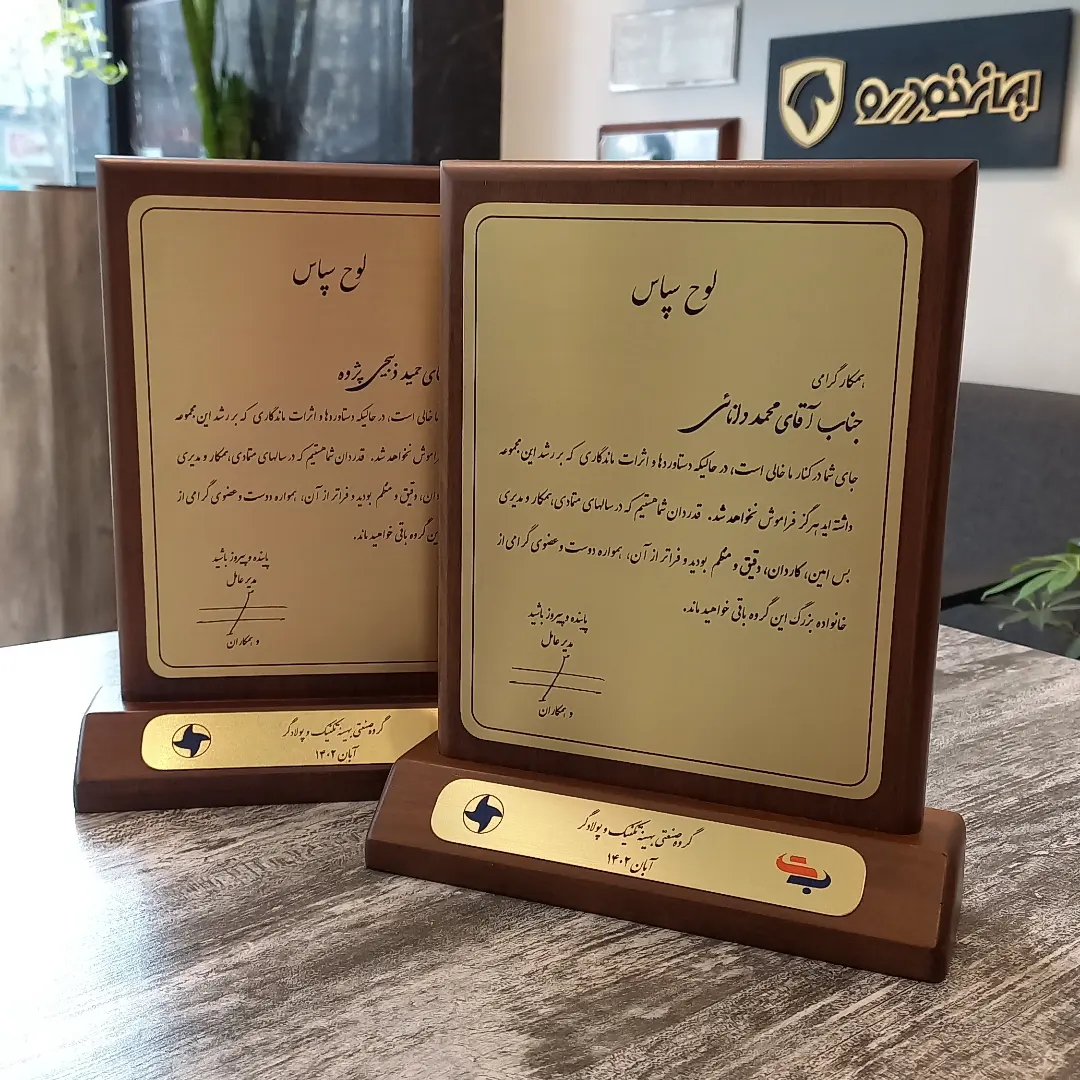 ایران خودرو
لوح سپاس
همکار گرامی
جناب آقای محمد دانائی
جای شما در کنار ما خالی است، در حالیکه دستاوردها و اثرات ماندگاری که بر رشد این مجموعه
داشته اید هرگز فراموش نخواهد شد. قدردان شما هستیم که در سالهای متمادی، همکار و مدیری
بس امین، کاردان، دقیق و منظم بودید و فراتر از آن، همواره دوست و عضوی گرامی از
خانواده بزرگ این گروه باقی خواهید ماند.
پاینده و پیروز باشید
مدیر عامل
و همکاران
گروه صنعتی بهینه تکنیک و پولادگر
آبان ۱۴۰۲
لوح سپاس
حمید ذبیحی پژوه
ما خالی است، در حالیکه دستاوردها و اثرات ماندگاری که بر رشد این مجموعه
نخواهد شد. قدردان شما هستیم که در سالهای متمادی، همکار و مدیری
دقیق و منظم بودید و فراتر از آن، همواره دوست و عضوی گرامی از
این گروه باقی خواهید ماند.
پاینده و پیروز باشید
مدیر عامل
و همکاران
گروه صنعتی بهینه تکنیک و پولادگر
آبان ۱۴۰۲